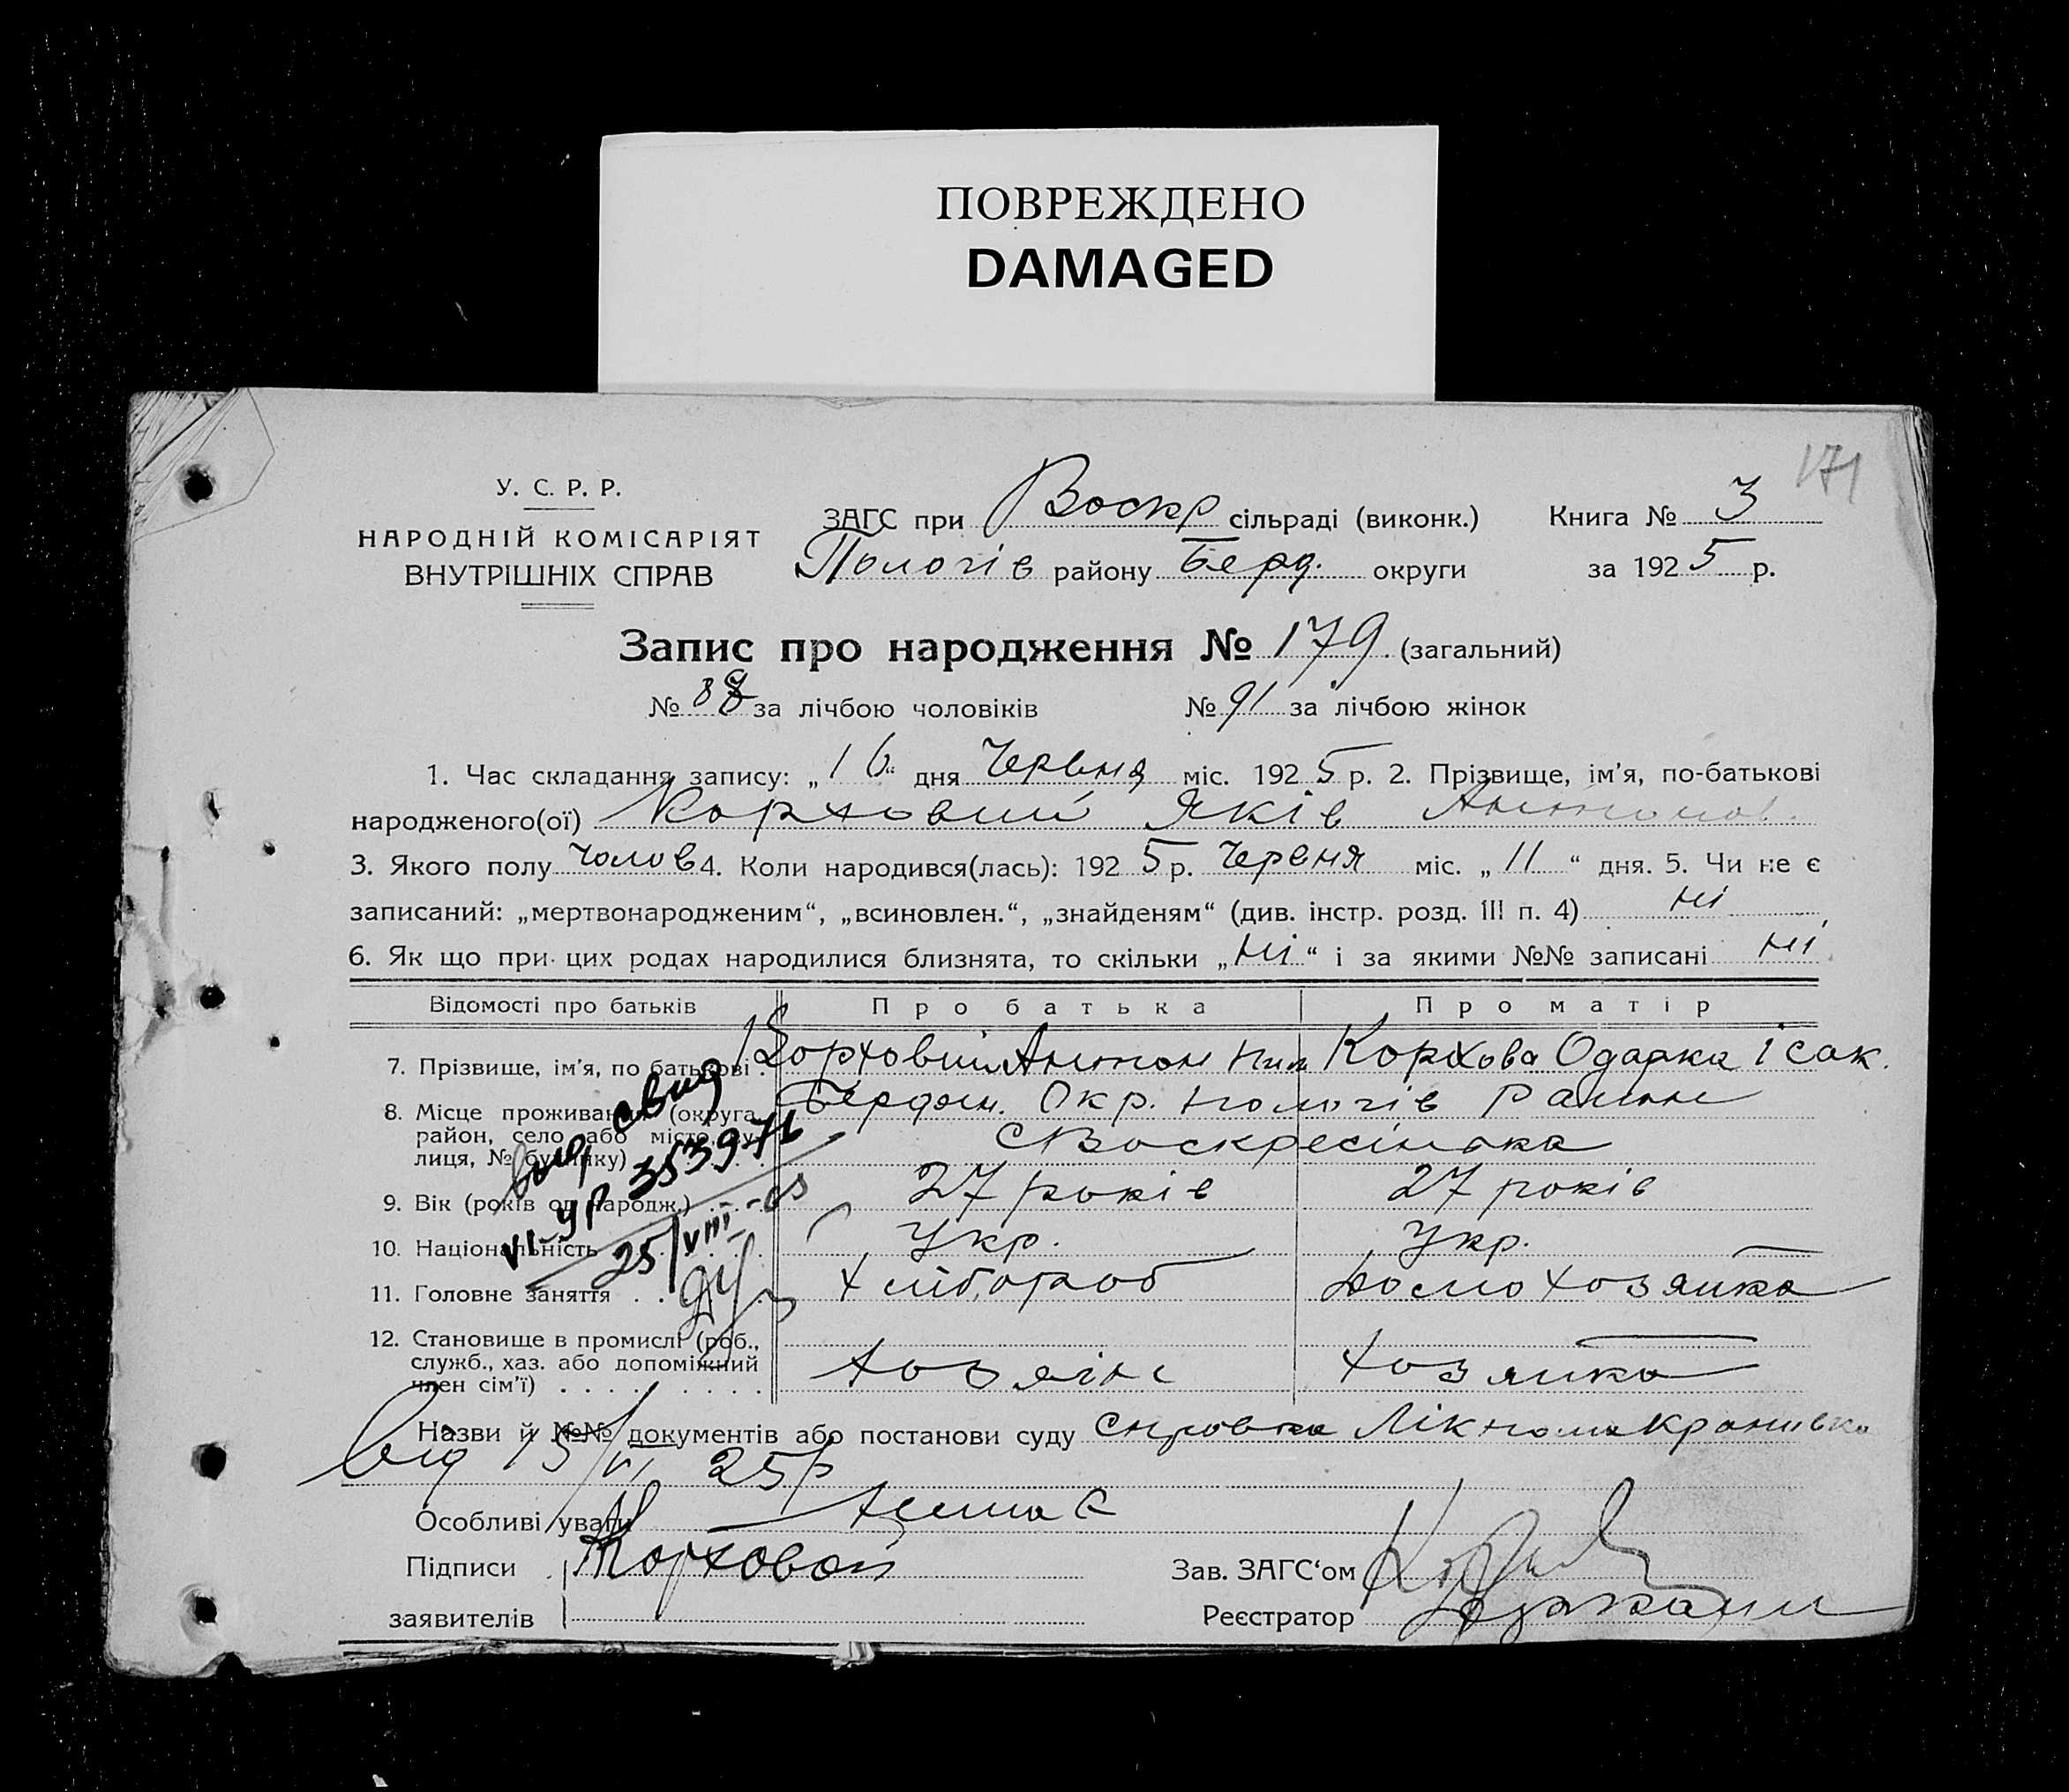 ПОВРЕЖДЕНО
DAMAGED
171
У. С. Р. Р.
НАРОДНІЙ КОМІСАРІЯТ
ВНУТРІШНІХ СПРАВ
ЗАГС при Воскр сільраді (виконк.) Книга № 3
Пологів району Берд. округи за 1925 р.
Запис про народження № 179 (загальний)
№ 88 за лічбою чоловіків № 91 за лічбою жінок
1. Час складання запису: „16“ дня Червня міс. 1925 р. 2. Прізвище, ім’я, по-батькові
народженого(ої) Корховий Яків Антонов.
3. Якого полу Чолов 4. Коли народився(лась): 1925 р. Червня міс. „11“ дня. 5. Чи не є
записаний: „мертвонародженим“, „всиновлен.“, „знайденям“ (див. інстр. розд. III п. 4) ні
6. Як що при цих родах народилися близнята, то скільки „ні“ і за якими №№ записані ні
Відомості про батьків Про батька Про матір
7. Прізвище, ім’я, по батькові Корховий Антон Корхова Одарка Ісак.
8. Місце проживання (округа, район, село або місто, вулиця, № будинку) Бердян. Окр. Пологів Район
с Воскресінька
9. Вік (років од народж.) 27 років 27 років
10. Національність Укр. Укр.
11. Головне заняття Хлібороб Домохозяйка
12. Становище в промислі (роб., служб., хаз. або допоміжний член сім’ї) Хозяїн Хозяйка
свид
VI-УР 353976
25/VIII
Назви й №№ документів або постанови суду Справка Лікпома
від 15/VI 25р
Особливі уваги Немає
Підписи Корховой Зав. ЗАГС‘ом
заявителів Реєстратор